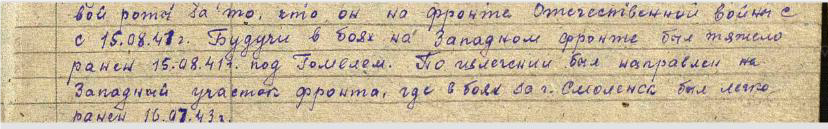 вой роты за то, что он на фронте Отечественной войны с
с 15.08.41 г. Будучи в боях на Западном фронте был тяжело
ранен 15.08.41 г. под Гомелем. По излечении был направлен на
Западный участок фронта, где в боях за г. Смоленск был легко
ранен 16.07.43 г.